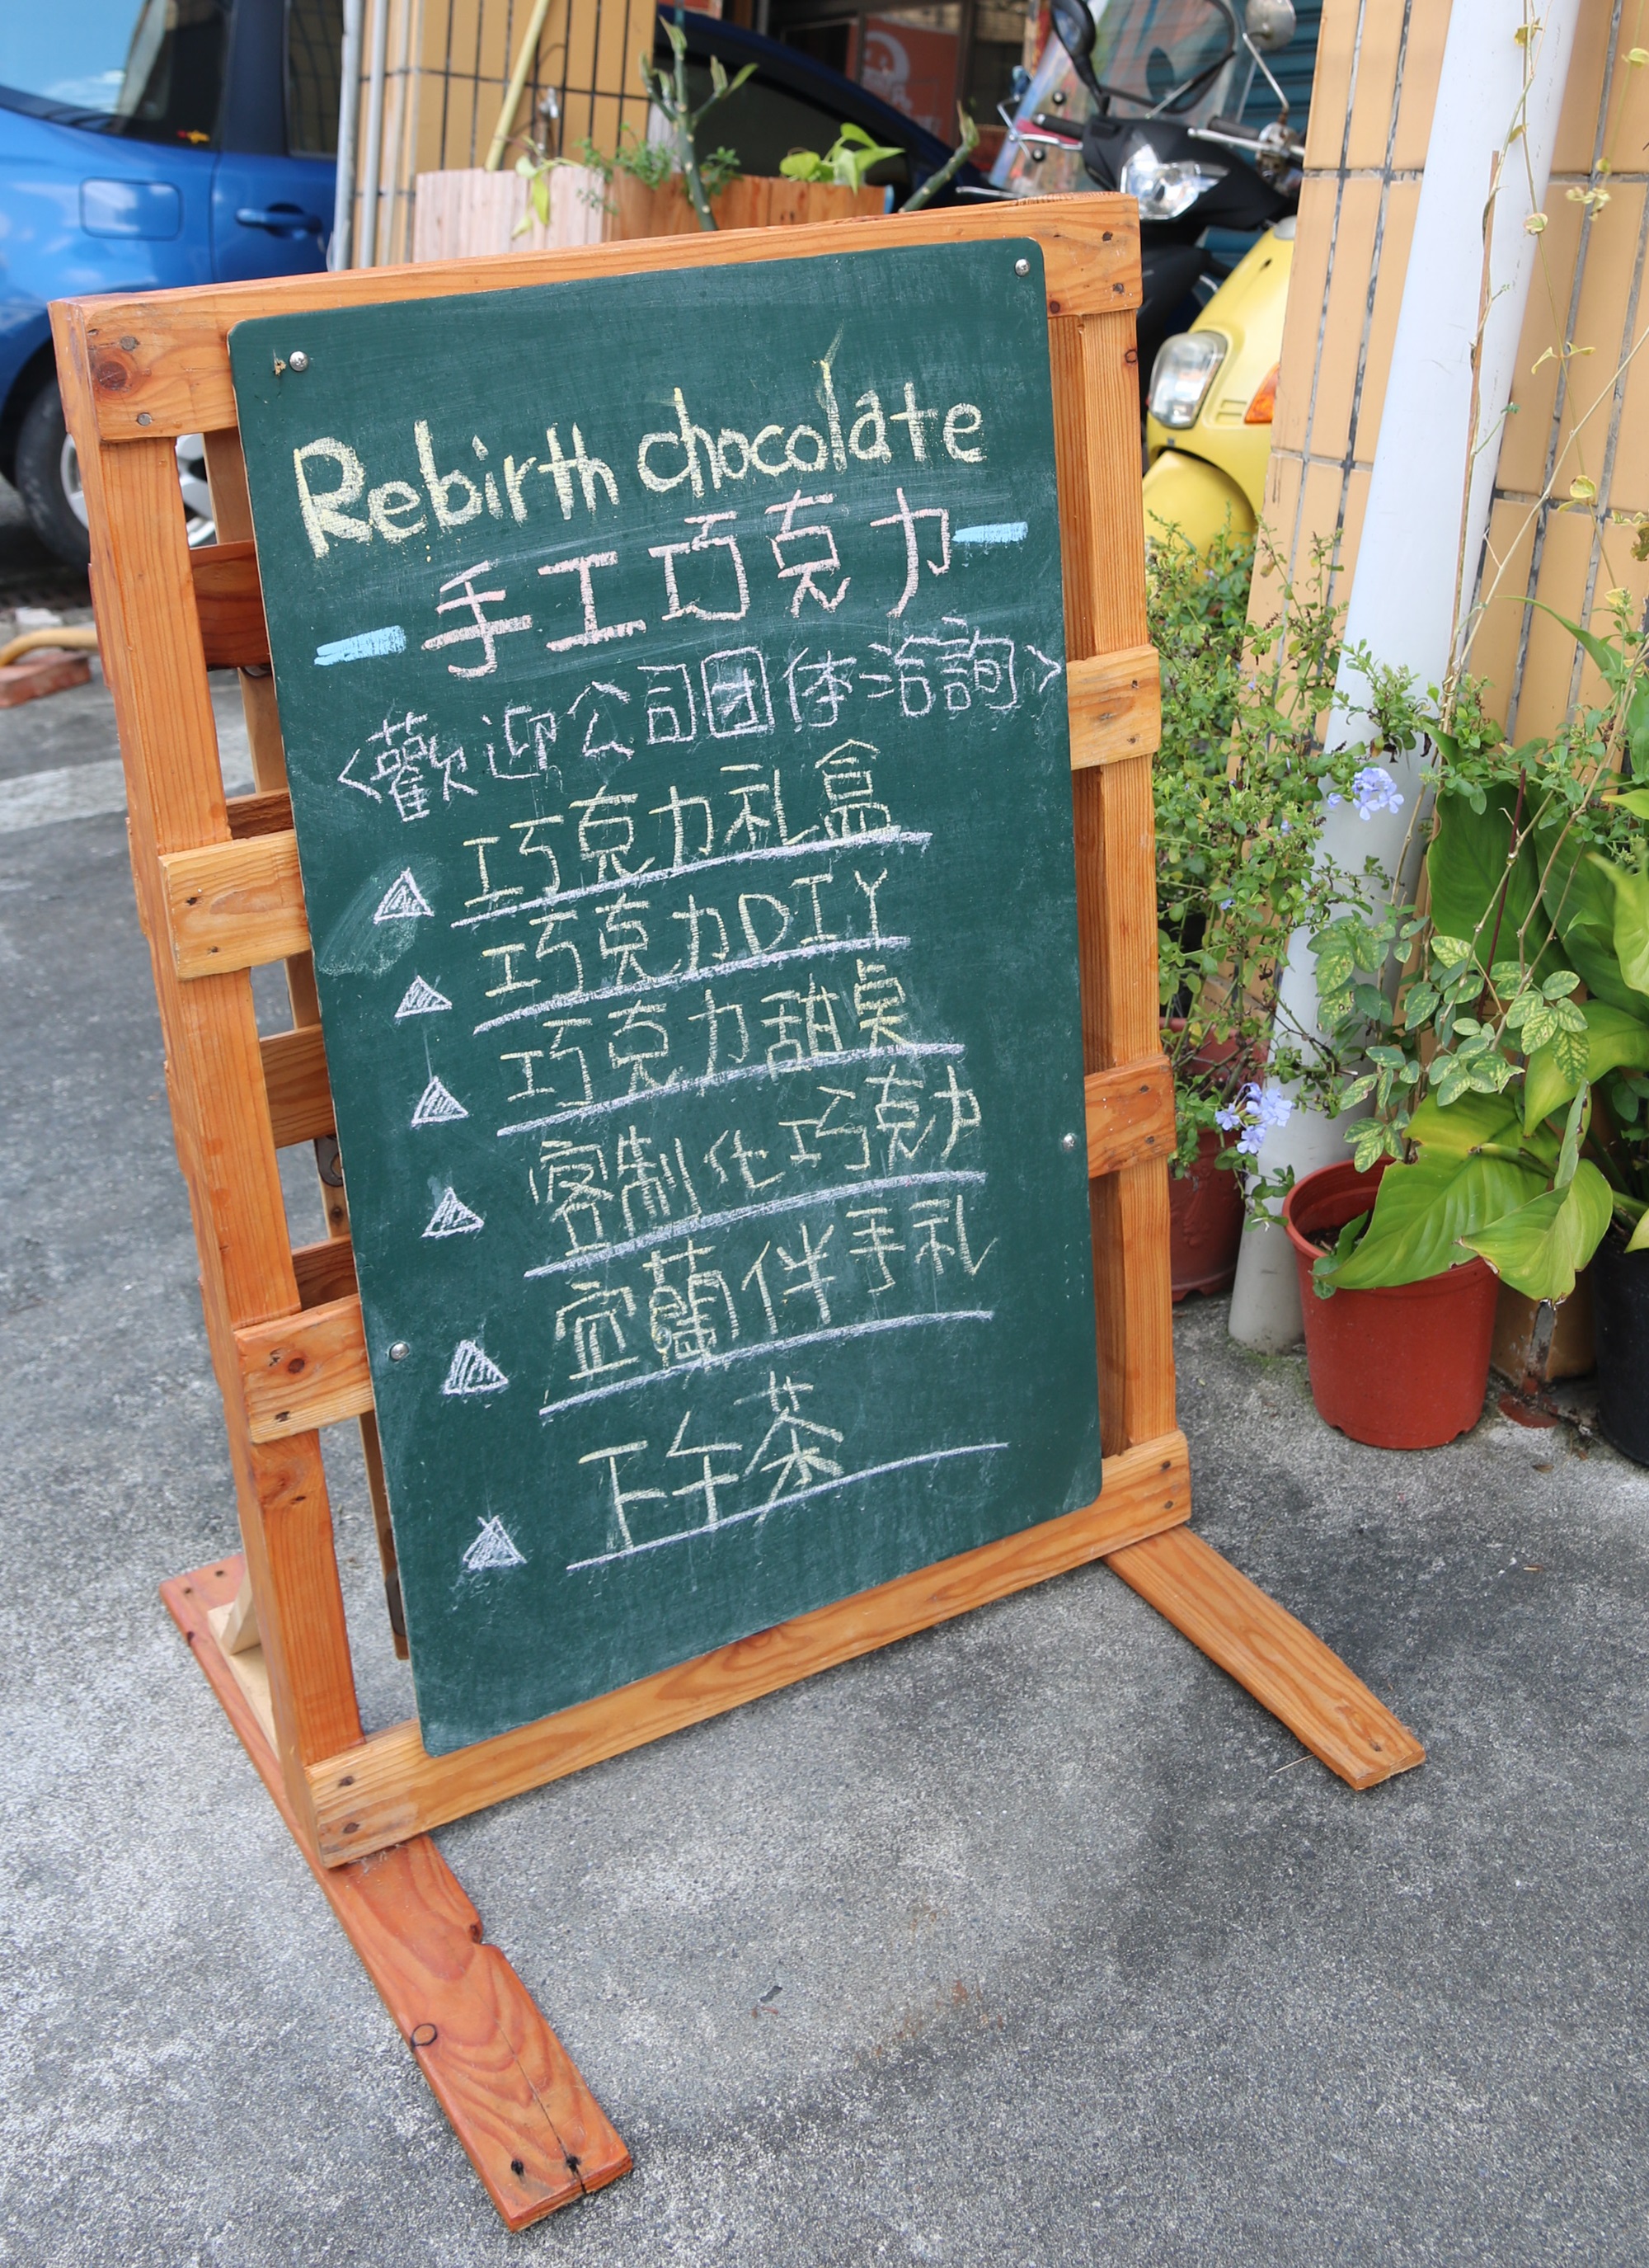 Rebirth chocolate
手工巧克力
<歡迎公司团体洽詢>
巧克力礼盒
巧克力DIY
巧克力甜桌
客制化巧克力
宜蘭伴手礼
下午茶